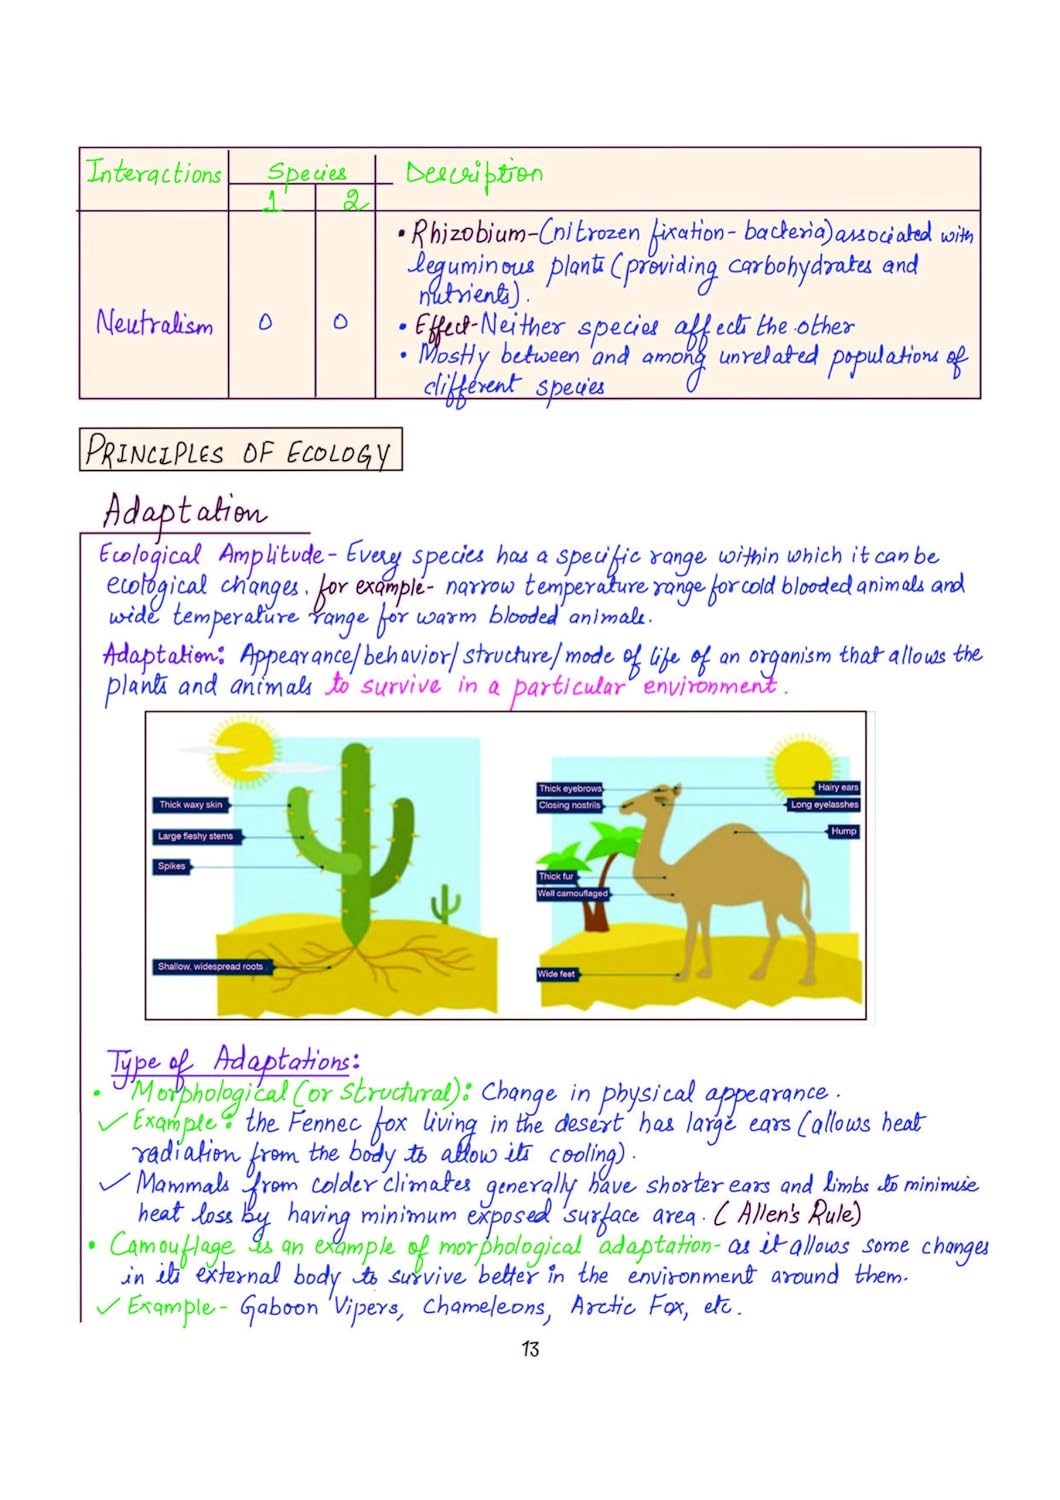 Interactions Species Description
1 2
• Rhizobium-(nitrozen fixation- bacteria) associated with
leguminous plants (providing carbohydrates and
nutrients).
Neutralism 0 0
• Effect-Neither species affects the other
• Mostly between and among unrelated populations of
different species
PRINCIPLES OF ECOLOGY
Adaptation
Ecological Amplitude- Every species has a specific range within which it can be
ecological changes. for example- narrow temperature range for cold blooded animals and
wide temperature range for warm blooded animals.
Adaptation: Appearance/behavior/structure/mode of life of an organism that allows the
plants and animals to survive in a particular environment.
Thick waxy skin
Large fleshy stems
Spikes
Shallow, widespread roots
Thick eyebrows
Closing nostrils
Hairy ears
Long eyelasshes
Hump
Thick fur
Well camouflaged
Wide feet
Type of Adaptations:
• Morphological (or Structural): Change in physical appearance.
✓ Example: the Fennec fox living in the desert has large ears (allows heat
radiation from the body to allow its cooling).
✓ Mammals from colder climates generally have shorter ears and limbs to minimise
heat loss by having minimum exposed surface area. (Allen's Rule)
• Camouflage is an example of morphological adaptation- as it allows some changes
in its external body to survive better in the environment around them.
✓ Example- Gaboon Vipers, Chameleons, Arctic Fox, etc.
13